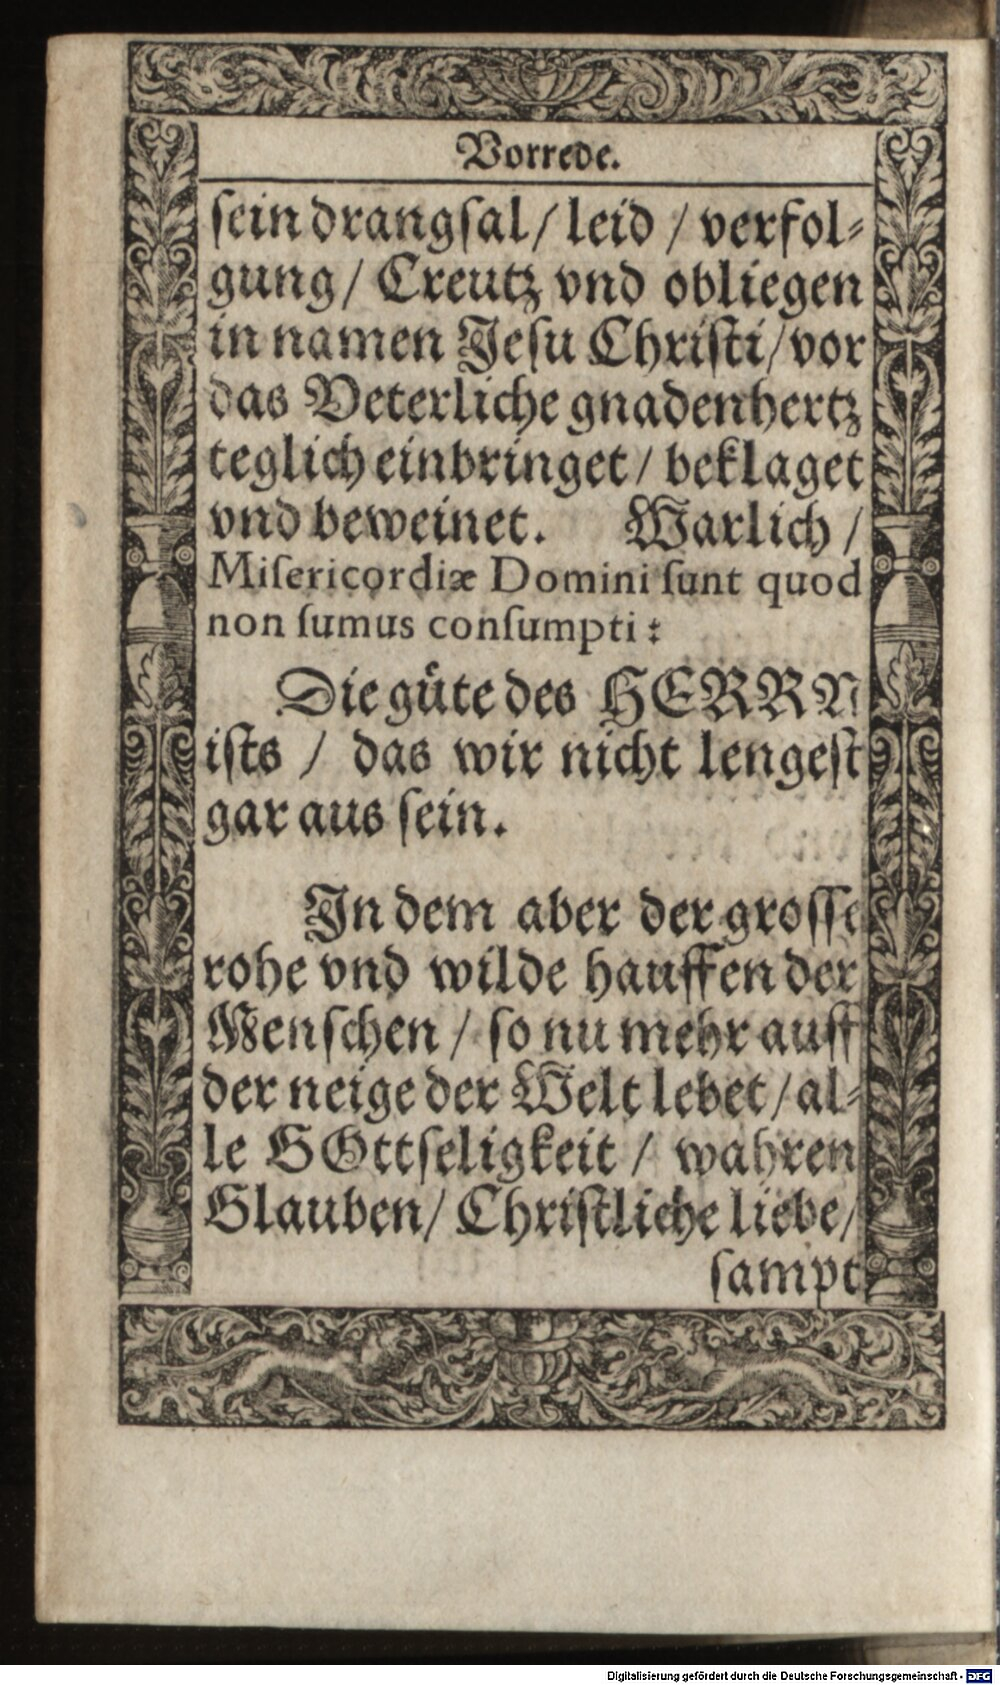 Vorrede.
ſein drangſal / leid / verfol⸗
gung / Creutz vnd obliegen
in namen Jeſu Chriſti / vor
das Veterliche gnadenhertz
teglich einbringet / beklaget
vnd beweinet. Warlich /
Miſericordiæ Domini ſunt quod
non ſumus conſumpti:
Die güte des HERRN
iſts / das wir nicht lengeſt
gar aus ſein.
In dem aber der groſſe
rohe vnd wilde hauffen der
Menſchen / ſo nu mehr auff
der neige der Welt lebet / al⸗
le GOttſeligkeit / wahren
Glauben / Chriſtliche liebe /
ſampt
Digitalisierung gefördert durch die Deutsche Forschungsgemeinschaft - DFG